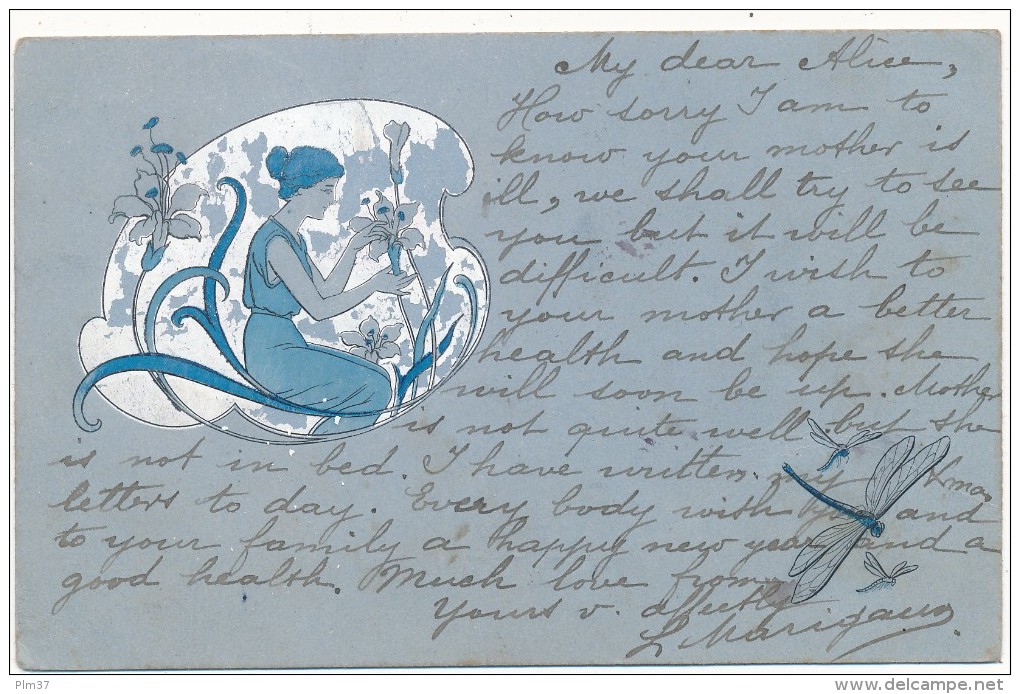 My dear Alice,
How sorry I am to
know your mother is
ill, we shall try to see
you but it will be
difficult. I wish to
your mother a better
health and hope she
will soon be up. Mother
is not quite well but she
is not in bed. I have written my Xmas
letters to day. Every body wish you and
to your family a happy new year and a
good health. Much love from
Yours v. affectly
L Marigaux
Plm37
www.delcampe.net